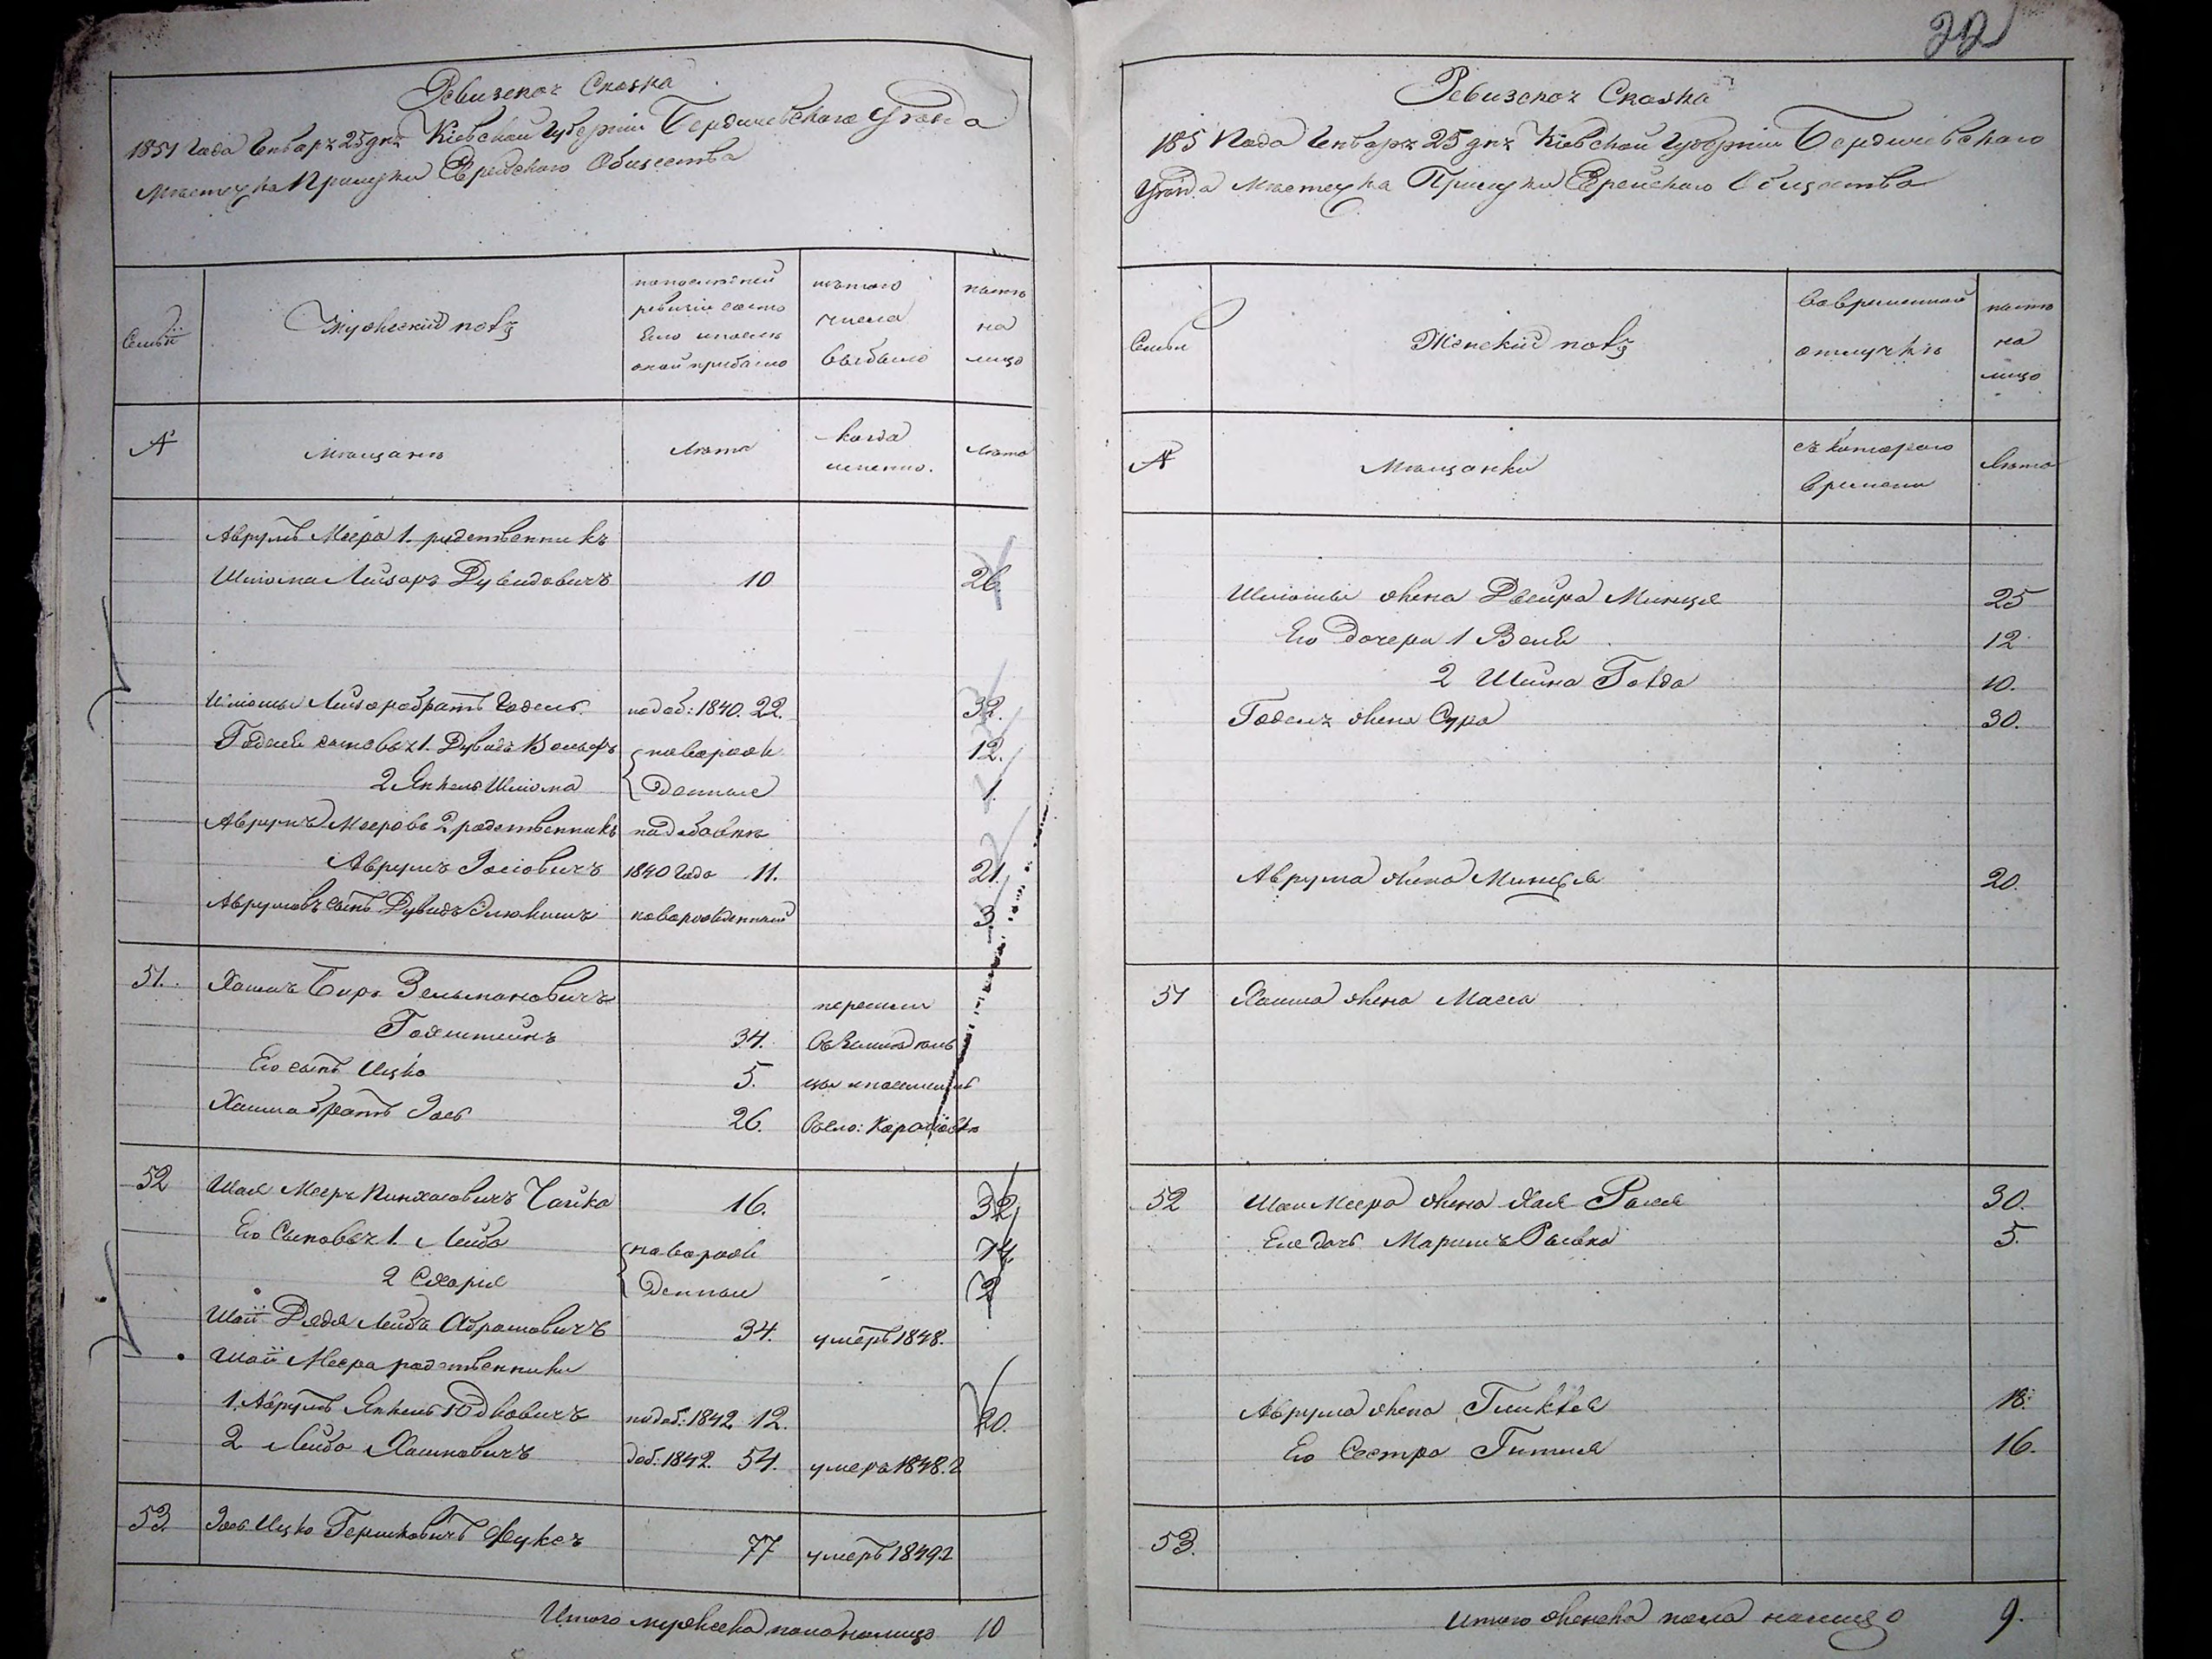 22
Ревизская Сказка
1851 Года Генваря 25 дня Кіевской Губерніи Бердичевскаго Уезда
Местечка Прилуки Еврейского Общества
Семьи
Мужеский полъ
по последней
ревизии состо
яло и после
оной прибыло
изъ того
числа
выбыло
ныне
на
лицо
№
Мещане
Лета
когда
именно.
Лета
Аврумъ Меера 1. родственникъ
Шлиома Лейзоръ Дувидовичъ 10 26
Шлиомы Лейзора братъ Годель по доб: 1840. 22. 32.
Годеля сыновья 1. Дувидъ Вольфъ новорож 12.
2 Янкель Шлиома денные 1.
Аврумъ Мееровъ 2 родственникъ по добавке
Аврумъ Іосіовичъ 1840 Года 11. 21.
Аврумовъ сынъ Дувидъ новорожденный 3.
51. Хаимъ Беръ Зельмановичъ перешли
Гольштейнъ 34.
Его сынъ Ицко 5.
Хаима братъ Іосъ 26.
52 Шая Мееръ Пинхасовичъ Чайка 16. 32
Его Сыновья 1. Лейба новорож 14
2 Схария денные 2
Шаи Дядя Лейба Абрамовичъ 34. умеръ 1848.
Шаи Меера родственники
1. Аврумъ Янкель Юдковичъ по доб: 1842 12. 20.
2 Лейба Хаимовичъ доб: 1842. 54. умеръ 1848.
53. Іось Ицко Гершковичъ 77 умеръ 1849
Итого мужеска пола налицо 10
Ревизская Сказка
1851 Года Генваря 25 дня Кіевской Губерніи Бердичевскаго
Уезда Местечка Прилуки Еврейского Общества
Семьи
Женский полъ
Во временной
отлучке
ныне
на
лицо
№
Мещанки
съ котораго
времени
Лета
Шлиомы жена Двейра Минця 25
Его дочери 1 Бейля 12
2 Шейна Голда 10.
Годеля жена Сура 30.
Аврума жена Минця 20.
51 Хаима жена Масса
52 Шаи Меера жена Хая Рахля 30.
Ея дочь Марьимъ Рывка 5.
Аврума жена 18.
Его Сестра Гитля 16.
53.
Итого женска пола налицо 9.